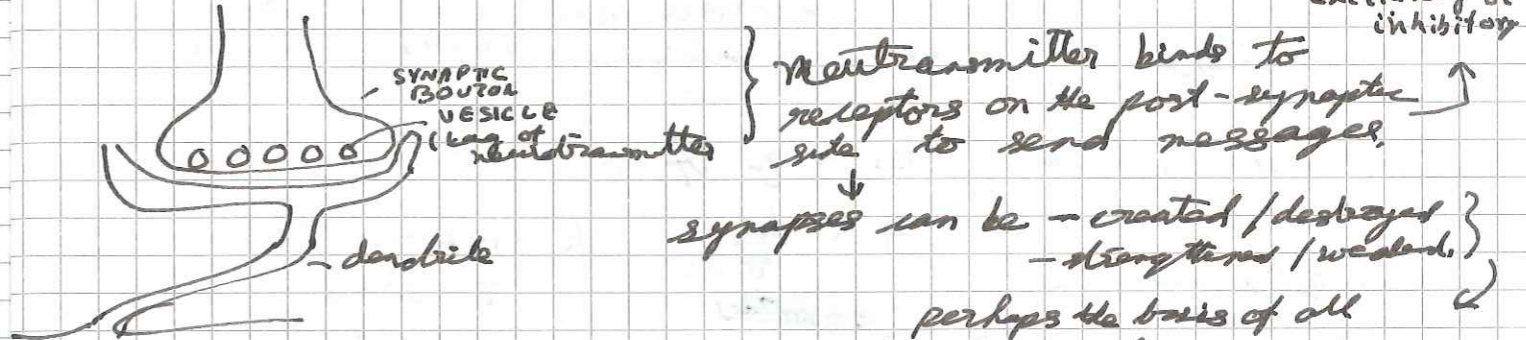 inhibitory
SYNAPTIC
BOUTON
VESICLE
(bag of
neurotransmitter
Neutransmitter binds to
receptors on the post-synaptic
side to send messages.
synapses can be - created / destroyed
- strengthened / weakend.
dendrite
perhaps the basis of all